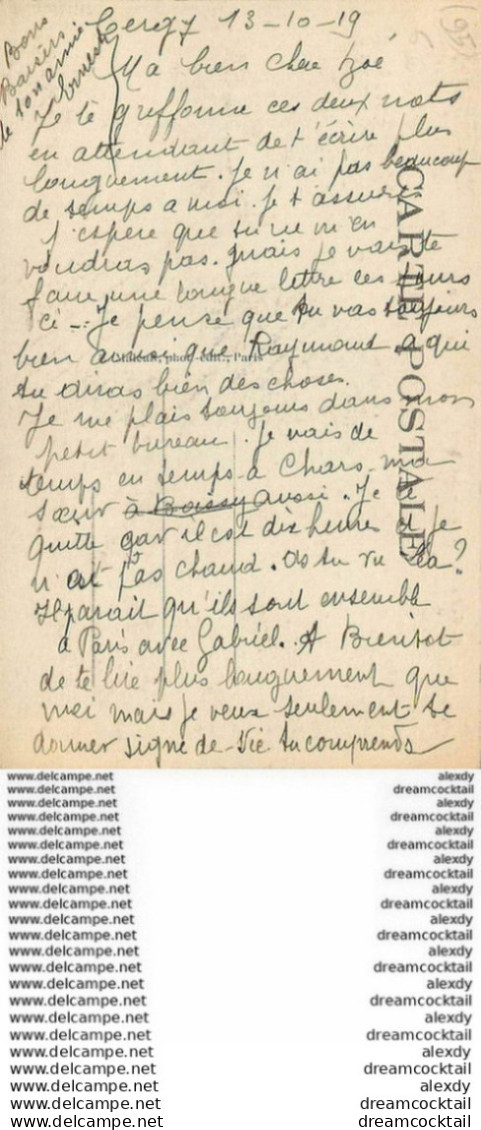 Cergy 13-10-19
(95)
Bons
Baisers
de ton amie
Ernest
Ma bien chere Zoé
Je te greffonne ces deux mots
en attendant de t'écrire plus
longuement. Je n'ai pas beaucoup
de temps a moi. Je t assure
J'espere que tu ne m'en
voudras pas. mais je vais te
faire une longue lettre ces jours
ci -. Je pense que tu vas toujours
bien ainsi que Raymond a qui
phot.-édit., Paris
tu diras bien des choses.
Je me plais toujours dans mon
petit bureau. Je vais de
temps en temps a Chars ma
sœur à Boissy aussi. Je te
quitte car il est dix heures et je
n'ai pas chaud. As tu vu Léa?
Il parait qu'ils sont ensemble
à Paris avec Gabriel. A Bientot
de te lire plus longuement que
moi mais je veux seulement te
donner signe de vie tu comprends
CARTE POSTALE
www.delcampe.net alexdy
www.delcampe.net dreamcocktail
www.delcampe.net alexdy
www.delcampe.net dreamcocktail
www.delcampe.net alexdy
www.delcampe.net dreamcocktail
www.delcampe.net alexdy
www.delcampe.net dreamcocktail
www.delcampe.net alexdy
www.delcampe.net dreamcocktail
www.delcampe.net alexdy
www.delcampe.net dreamcocktail
www.delcampe.net alexdy
www.delcampe.net dreamcocktail
www.delcampe.net alexdy
www.delcampe.net dreamcocktail
www.delcampe.net alexdy
www.delcampe.net dreamcocktail
www.delcampe.net alexdy
www.delcampe.net dreamcocktail
www.delcampe.net alexdy
www.delcampe.net dreamcocktail
www.delcampe.net dreamcocktail